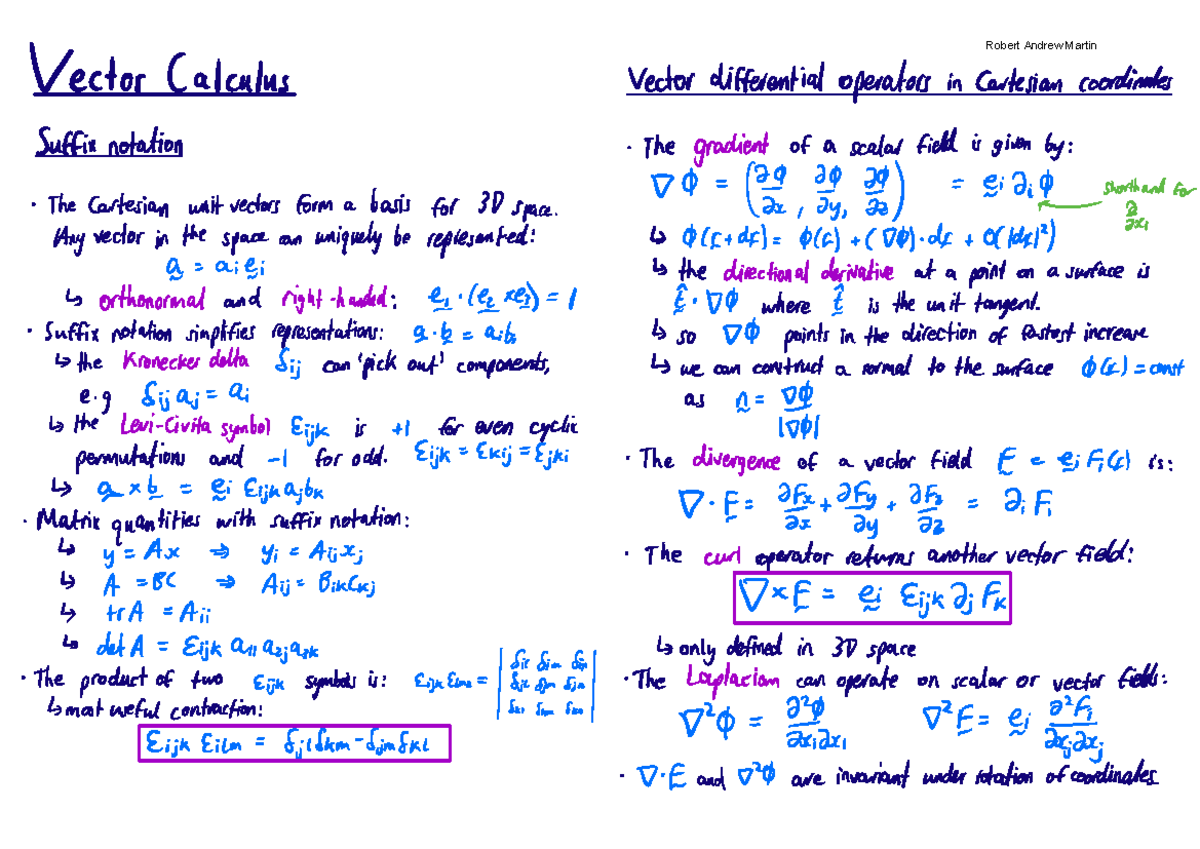 Robert Andrew Martin
Vector Calculus
Suffix notation
· The Cartesian unit vectors form a basis for 3D space.
Any vector in the space can uniquely be represented:
a = aᵢ eᵢ
↳ orthonormal and right-handed: e₁ · (e₂ × e₃) = 1
· Suffix notation simplifies representations: a · b = aᵢbᵢ
↳ the Kronecker delta δᵢⱼ can 'pick out' components,
e.g δᵢⱼ aⱼ = aᵢ
↳ the Levi-Civita symbol εijk is +1 for even cyclic
permutations and -1 for odd. εijk = εkij = εjki
↳ a × b = eᵢ εijk aⱼbₖ
· Matrix quantities with suffix notation:
↳ y = Ax ⇒ yᵢ = Aᵢⱼxⱼ
↳ A = BC ⇒ Aᵢⱼ = BᵢₖCₖⱼ
↳ trA = Aᵢᵢ
↳ det A = εijk a₁ᵢ a₂ⱼ a₃ₖ
· The product of two εijk symbols is: εijk εlmn = | δil δim δin |
| δjl δjm δjn |
| δkl δkm δkn |
↳ most useful contraction:
εijk εilm = δjl δkm - δjm δkl
Vector differential operators in Cartesian coordinates
· The gradient of a scalar field is given by:
∇Φ = (∂Φ/∂x, ∂Φ/∂y, ∂Φ/∂z) = eᵢ ∂ᵢ Φ
shorthand for
∂/∂xᵢ
↳ Φ(r + dr) = Φ(r) + (∇Φ) · dr + O(|dr|²)
↳ the directional derivative at a point on a surface is
t̂ · ∇Φ where t̂ is the unit tangent.
↳ so ∇Φ points in the direction of fastest increase
↳ we can construct a normal to the surface Φ(r) = const
as n = ∇Φ/|∇Φ|
· The divergence of a vector field F = eᵢ Fᵢ(r) is:
∇ · F = ∂Fx/∂x + ∂Fy/∂y + ∂Fz/∂z = ∂ᵢ Fᵢ
· The curl operator returns another vector field:
∇ × F = eᵢ εijk ∂ⱼ Fₖ
↳ only defined in 3D space
· The Laplacian can operate on scalar or vector fields:
∇²Φ = ∂²Φ/∂xᵢ∂xᵢ ∇²F = eᵢ ∂²Fᵢ/∂xⱼ∂xⱼ
· ∇ · F and ∇²Φ are invariant under rotation of coordinates